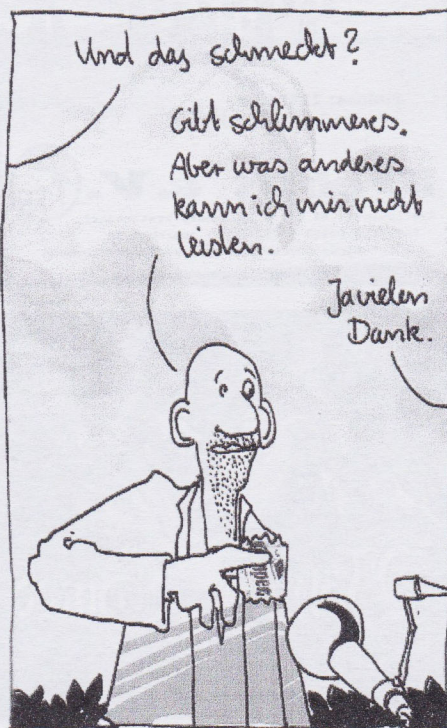 Und das schmeckt?
Gibt schlimmeres.
Aber was anderes
kann ich mir nicht
leisten.
Ja vielen
Dank.